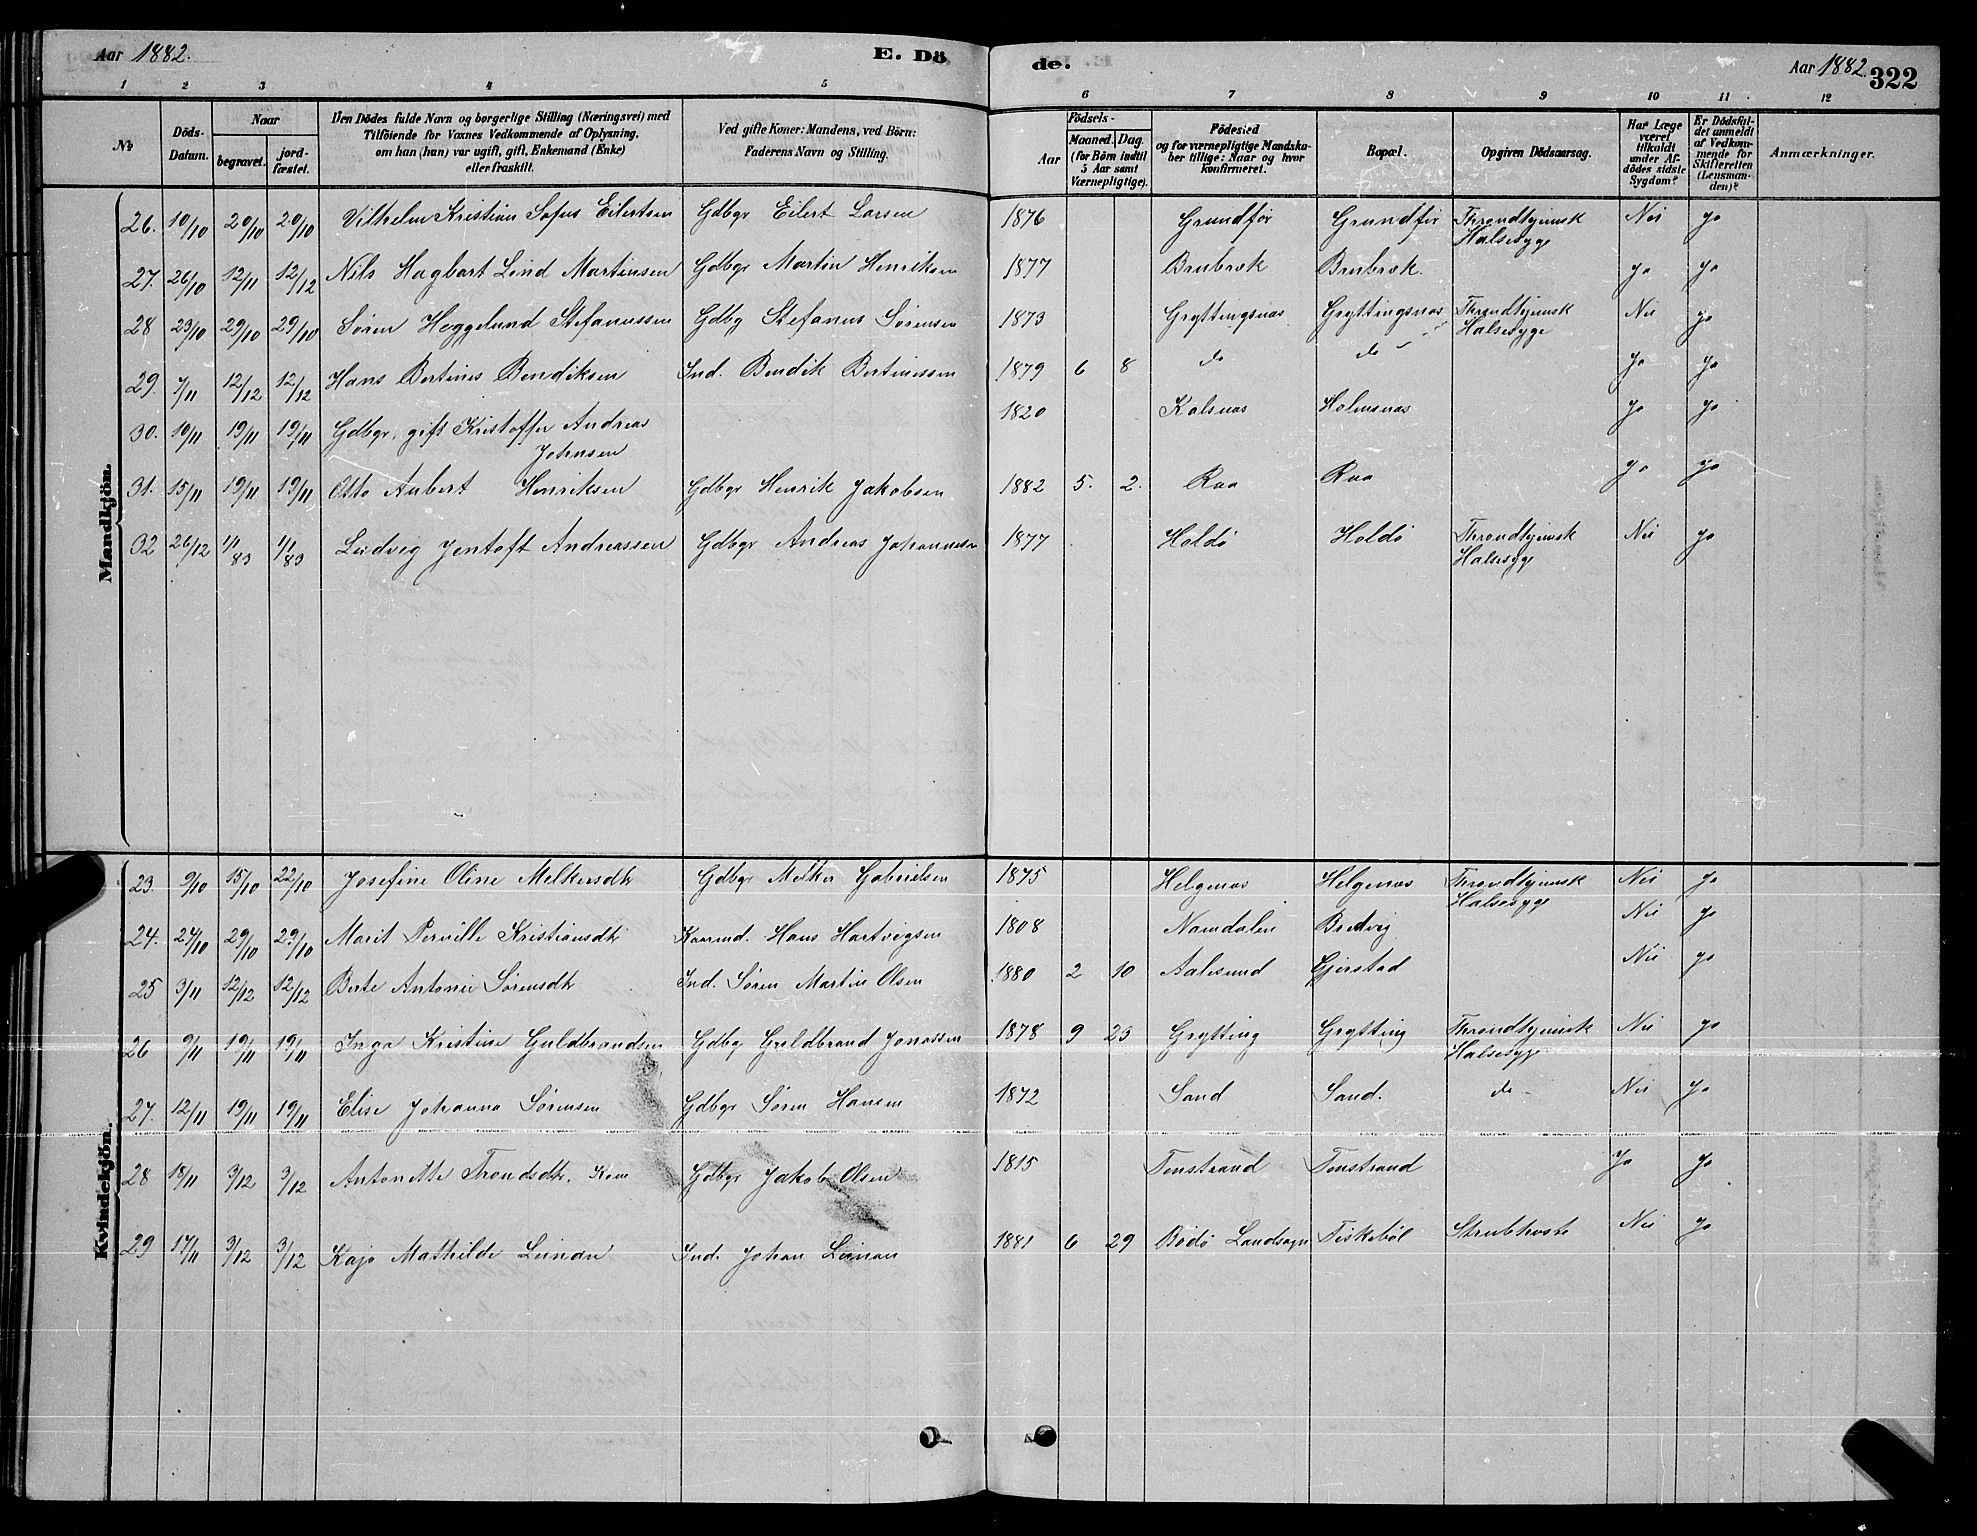 Aar 1882. E. Dö de. Aar 1882. 322
1 2 3 4 5 6 7 8 9 10 11 12
№ Döds-Datum. Naar begravet. jord-fæstet. Den Dödes fulde Navn og borgerlige Stilling (Næringsvei) med Tilföiende for Voxnes Vedkommende af Oplysning, om han (hun) var ugift, gift, Enkemand (Enke) eller fraskilt. Ved gifte Koner: Mandens, ved Börn: Faderens Navn og Stilling. Födsels- Aar Maaned. Dag. (for Börn indtil 5 Aar samt Værnepligtige). Födested og for værnepligtige Mandskaber tillige: Naar og hvor konfirmeret. Bopæl. Opgiven Dödsaarsag. Har Læge været tilkaldt under Afdödes sidste Sygdom? Er Dödsfaldet anmeldt af Vedkommende for Skifteretten (Lensmanden)? Anmærkninger.
Mandkjön.
26. 10/10 20/10 20/10 Vilhelm Kristian Sofus Eilertsen Gdbgr Eilert Larsen 1876 Grundför Grundför Throndhjemsk Halsesyge Nei Ja
27. 26/10 12/11 12/12 Nils Hagbart Lind Martinsen Gdbgr Martin Henriksen 1877 Brubræk Brubræk. Ja Ja
28 23/10 29/10 29/10 Søren Heggelund Stefanussen Gdbg Stefanus Sørensen 1873 Gryttingsnæs Gryttingsnæs Throndhjemsk Halsesyge Nei Ja
29. 7/11 12/12 12/12 Hans Bertines Bendiksen Ind. Bendik Bertinessen 1879 6 8 do do Ja Ja
30. 10/11 19/11 19/11 Gdbgr. gift Kristoffer Andreas
Johnsen 1820 Kalsnæs Holmsnæs Ja Ja
31. 15/11 19/11 19/11 Otto Aubert Henriksen Gdbgr Henrik Jakobsen 1882 5. 2. Raa Raa Ja Ja
32 26/12 1/1 83 1/1 83 Ludvig Jentoft Andreassen Gdbgr Andreas Johannesen 1877 Holdö Holdö Throndhjemsk Halsesyge Nei Ja
Kvindekjön.
23. 9/10 15/10 22/10 Josefine Oline Melkersdtr Gdbgr Melker Gabrielsen 1875 Helgenæs Helgenæs Throndhjemsk Halsesyge Nei Ja
24. 24/10 29/10 29/10 Marit Pernille Kristiansdtr Kaarmd. Hans Hartvigsen 1808 Namdalen Bredvig Nei Ja
25 3/11 12/12 12/12 Berte Antonie Sørensdtr Ind. Søren Martin Olsen 1880 2 10 Aalesund Gjerstad Nei Ja
26 9/11 19/11 19/11 Inga Kristine Guldbrandsen Gdbg Guldbrand Jonassen 1878 9 23 Grytting Grytting Throndhjemsk Halsesyge Nei Ja
27. 12/11 19/11 19/11 Elise Johanna Sørensen Gdbgr Søren Hansen 1872 Sand Sand. do Nei Ja
28 18/11 3/12 3/12 Antonette Trondsdtr. Kone Gdbgr Jakob Olsen 1815 Tenstrand Tenstrand Ja Ja
29 17/11 3/12 3/12 Kaja Mathilde Leinan Ind. Johan Leinan 1881 6 29 Bodö Landsogn Fiskeböl Strubhoste Nei Ja